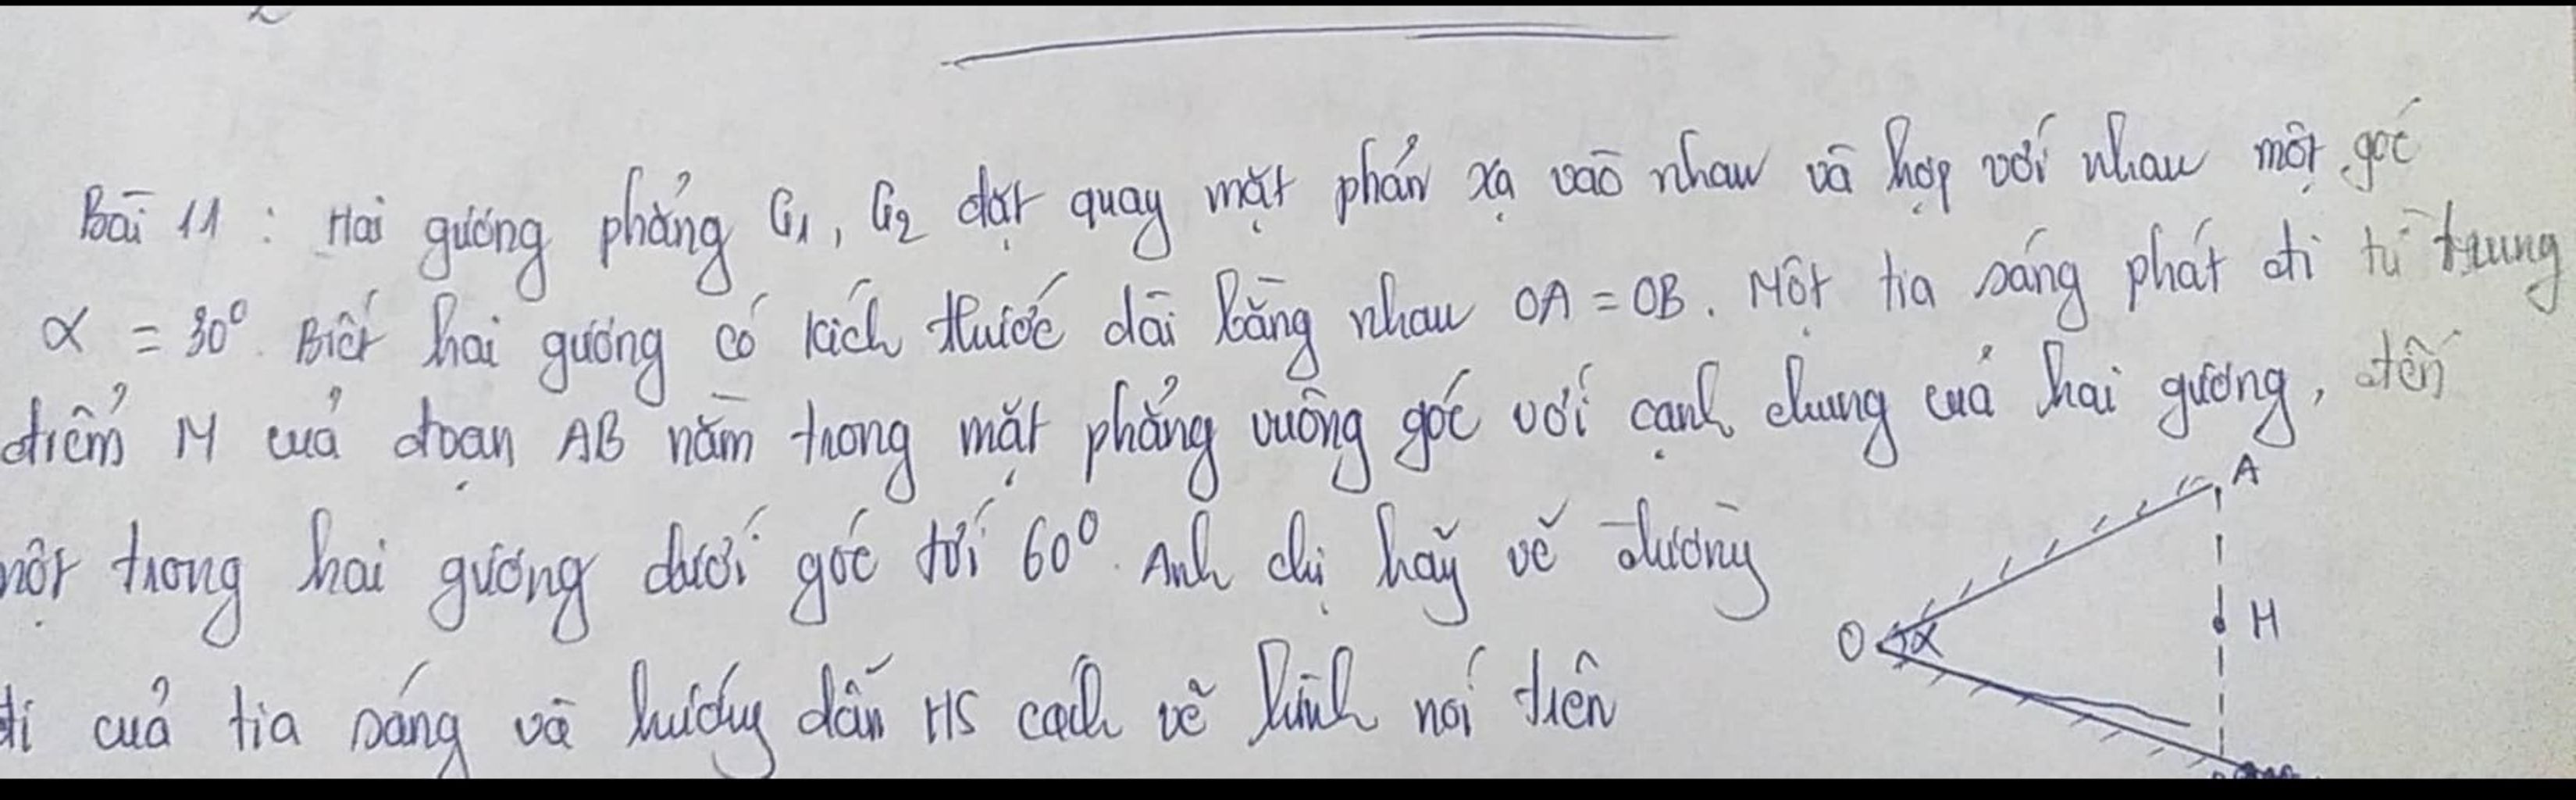 Bài 11 : Hai gương phẳng G1, G2 đặt quay mặt phản xạ vào nhau và hợp với nhau một góc
α = 30° . Biết hai gương có kích thước dài bằng nhau OA = OB. Một tia sáng phát đi từ trung
điểm M của đoạn AB nằm trong mặt phẳng vuông góc với cạnh chung của hai gương, đến
một trong hai gương dưới góc tới 60° . Anh chị hãy vẽ đường
đi của tia sáng và hướng dẫn HS cách vẽ hình nói trên
A
M
O α